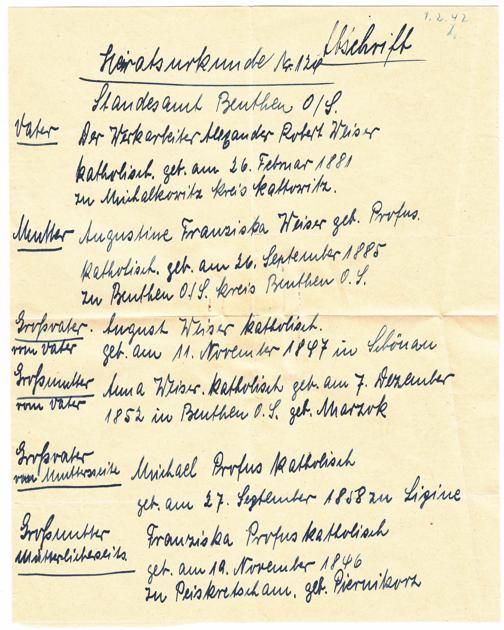 1.2.42
Abschrift
Heiratsurkunde Nr. 124
Standesamt Beuthen O/S.
Vater Der Werkarbeiter Alexander Robert Weiser
katholisch. geb. am 26. Februar 1881
zu Michalkowitz kreis Kattowitz.
Mutter Augustine Franziska Weiser geb. Profus.
katholisch. geb. am 26. September 1885
zu Beuthen O/S. kreis Beuthen O.S.
Großvater. August Weiser katholisch.
vom Vater geb. am 11. November 1847 in Schönau
Großmutter Anna Weiser. katholisch geb. am 7. Dezember
vom Vater 1852 in Beuthen O.S. geb. Marzok
Großvater
vom Mutterseite Michael Profus katholisch
geb. am 27. September 1858 zu Lipine
Großmutter Franziska Profus katholisch
Mütterlicherseits geb. am 19. November 1846
zu Peiskretscham. geb. Piernikorz